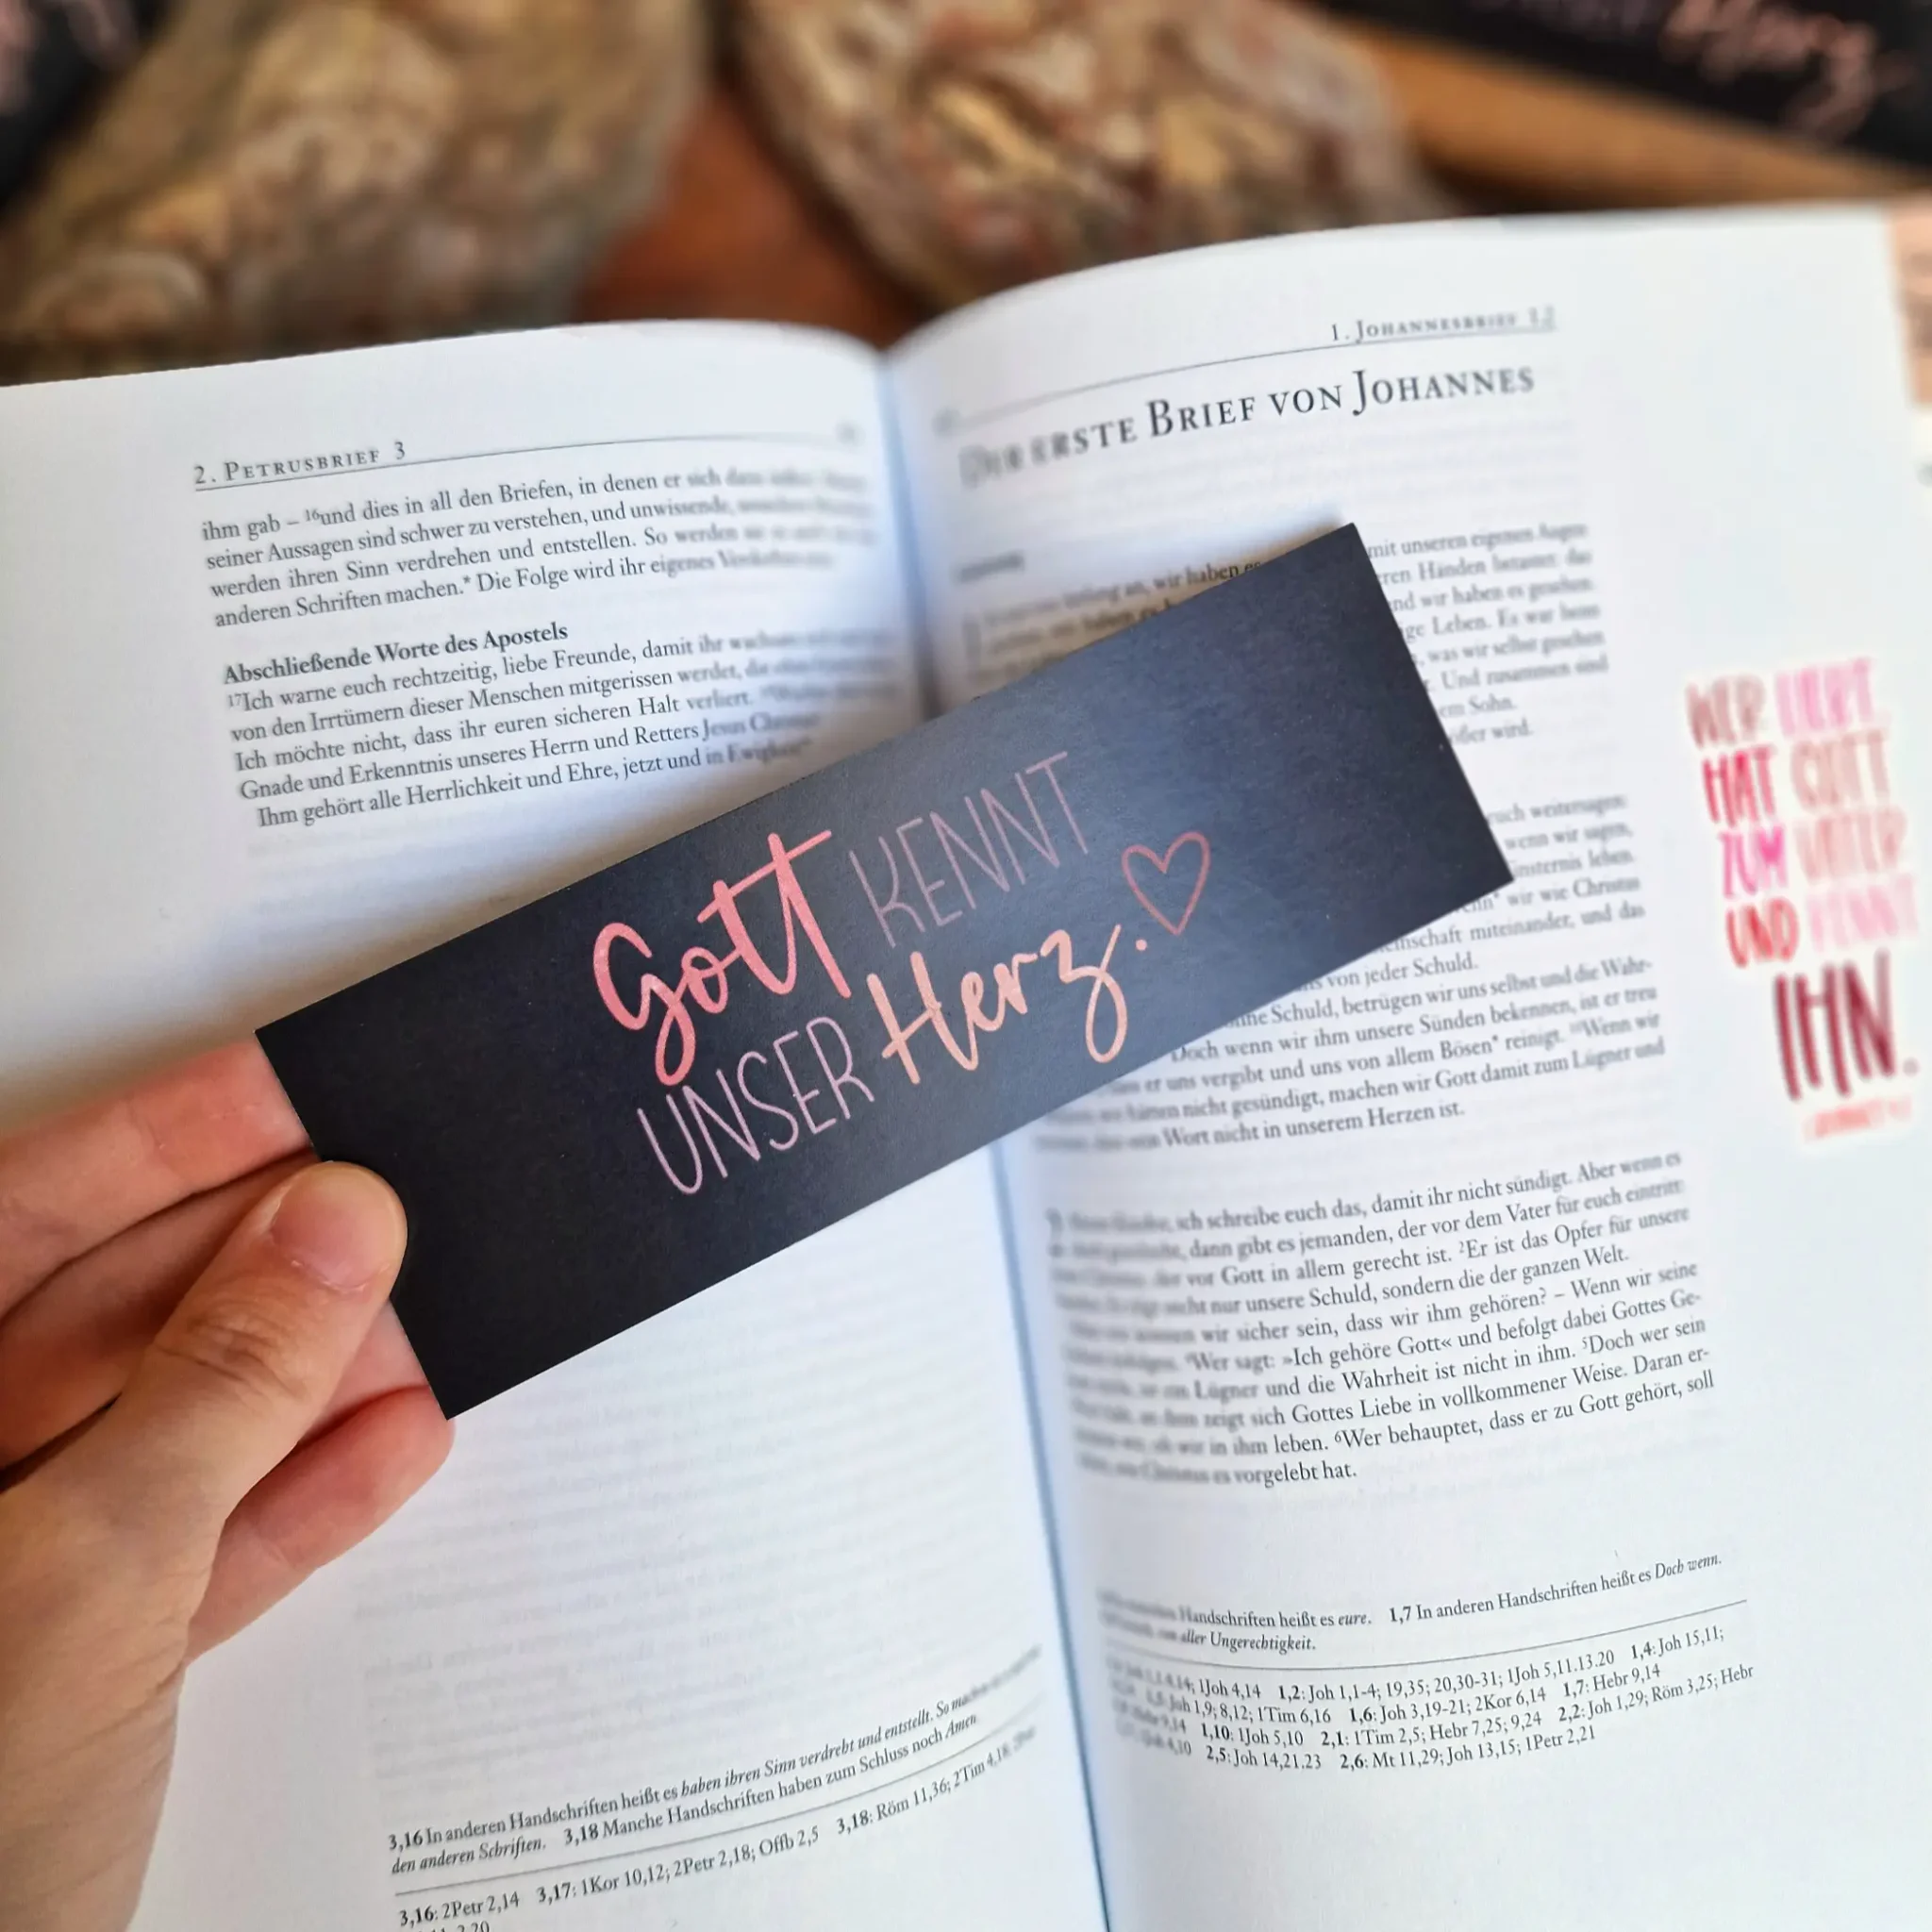 2. Petrusbrief 3
ihm gab – ¹⁶und dies in all den Briefen, in denen er sich
seiner Aussagen sind schwer zu verstehen, und unwissende,
werden ihren Sinn verdrehen und entstellen. So werden
anderen Schriften machen.* Die Folge wird ihr eigenes
Abschließende Worte des Apostels
¹⁷Ich warne euch rechtzeitig, liebe Freunde, damit ihr
von den Irrtümern dieser Menschen mitgerissen werdet,
Ich möchte nicht, dass ihr euren sicheren Halt verliert.
Gnade und Erkenntnis unseres Herrn und Retters Jesus
Ihm gehört alle Herrlichkeit und Ehre, jetzt und in
3,16 In anderen Handschriften heißt es haben ihren Sinn verdreht und entstellt. So
den anderen Schriften. 3,18 Manche Handschriften haben zum Schluss noch Amen.
3,16: 2Petr 2,14 3,17: 1Kor 10,12; 2Petr 2,18; Offb 2,5 3,18: Röm 11,36; 2Tim 4,18
Gott KENNT
UNSER Herz.
1. Johannesbrief 1.2
Der erste Brief von Johannes
wir haben es
mit unseren eigenen Augen
Händen betastet: das
und wir haben es gesehen
Leben. Es war beim
was wir selbst gesehen
Und zusammen sind
Sohn.
wird.
euch weitersagen:
wenn wir sagen,
leben.
wir wie Christus
miteinander, und das
von jeder Schuld.
Schuld, betrügen wir uns selbst und die Wahr-
Doch wenn wir ihm unsere Sünden bekennen, ist er treu
er uns vergibt und uns von allem Bösen* reinigt. ¹⁰Wenn wir
nicht gesündigt, machen wir Gott damit zum Lügner und
Wort nicht in unserem Herzen ist.
ich schreibe euch das, damit ihr nicht sündigt. Aber wenn es
dann gibt es jemanden, der vor dem Vater für euch eintritt:
der vor Gott in allem gerecht ist. ²Er ist das Opfer für unsere
nicht nur unsere Schuld, sondern die der ganzen Welt.
wir sicher sein, dass wir ihm gehören? – Wenn wir seine
⁴Wer sagt: »Ich gehöre Gott« und befolgt dabei Gottes Ge-
Lügner und die Wahrheit ist nicht in ihm. ⁵Doch wer sein
zeigt sich Gottes Liebe in vollkommener Weise. Daran er-
wir in ihm leben. ⁶Wer behauptet, dass er zu Gott gehört, soll
es vorgelebt hat.
Handschriften heißt es eure. 1,7 In anderen Handschriften heißt es Doch wenn.
aller Ungerechtigkeit.
1Joh 4,14 1,2: Joh 1,1-4; 19,35; 20,30-31; 1Joh 5,11.13.20 1,4: Joh 15,11;
Joh 1,9; 8,12; 1Tim 6,16 1,6: Joh 3,19-21; 2Kor 6,14 1,7: Hebr 9,14
1,10: 1Joh 5,10 2,1: 1Tim 2,5; Hebr 7,25; 9,24 2,2: Joh 1,29; Röm 3,25; Hebr
2,5: Joh 14,21.23 2,6: Mt 11,29; Joh 13,15; 1Petr 2,21
WER LIEBT,
HAT GOTT
ZUM VATER
UND KENNT
IHN.